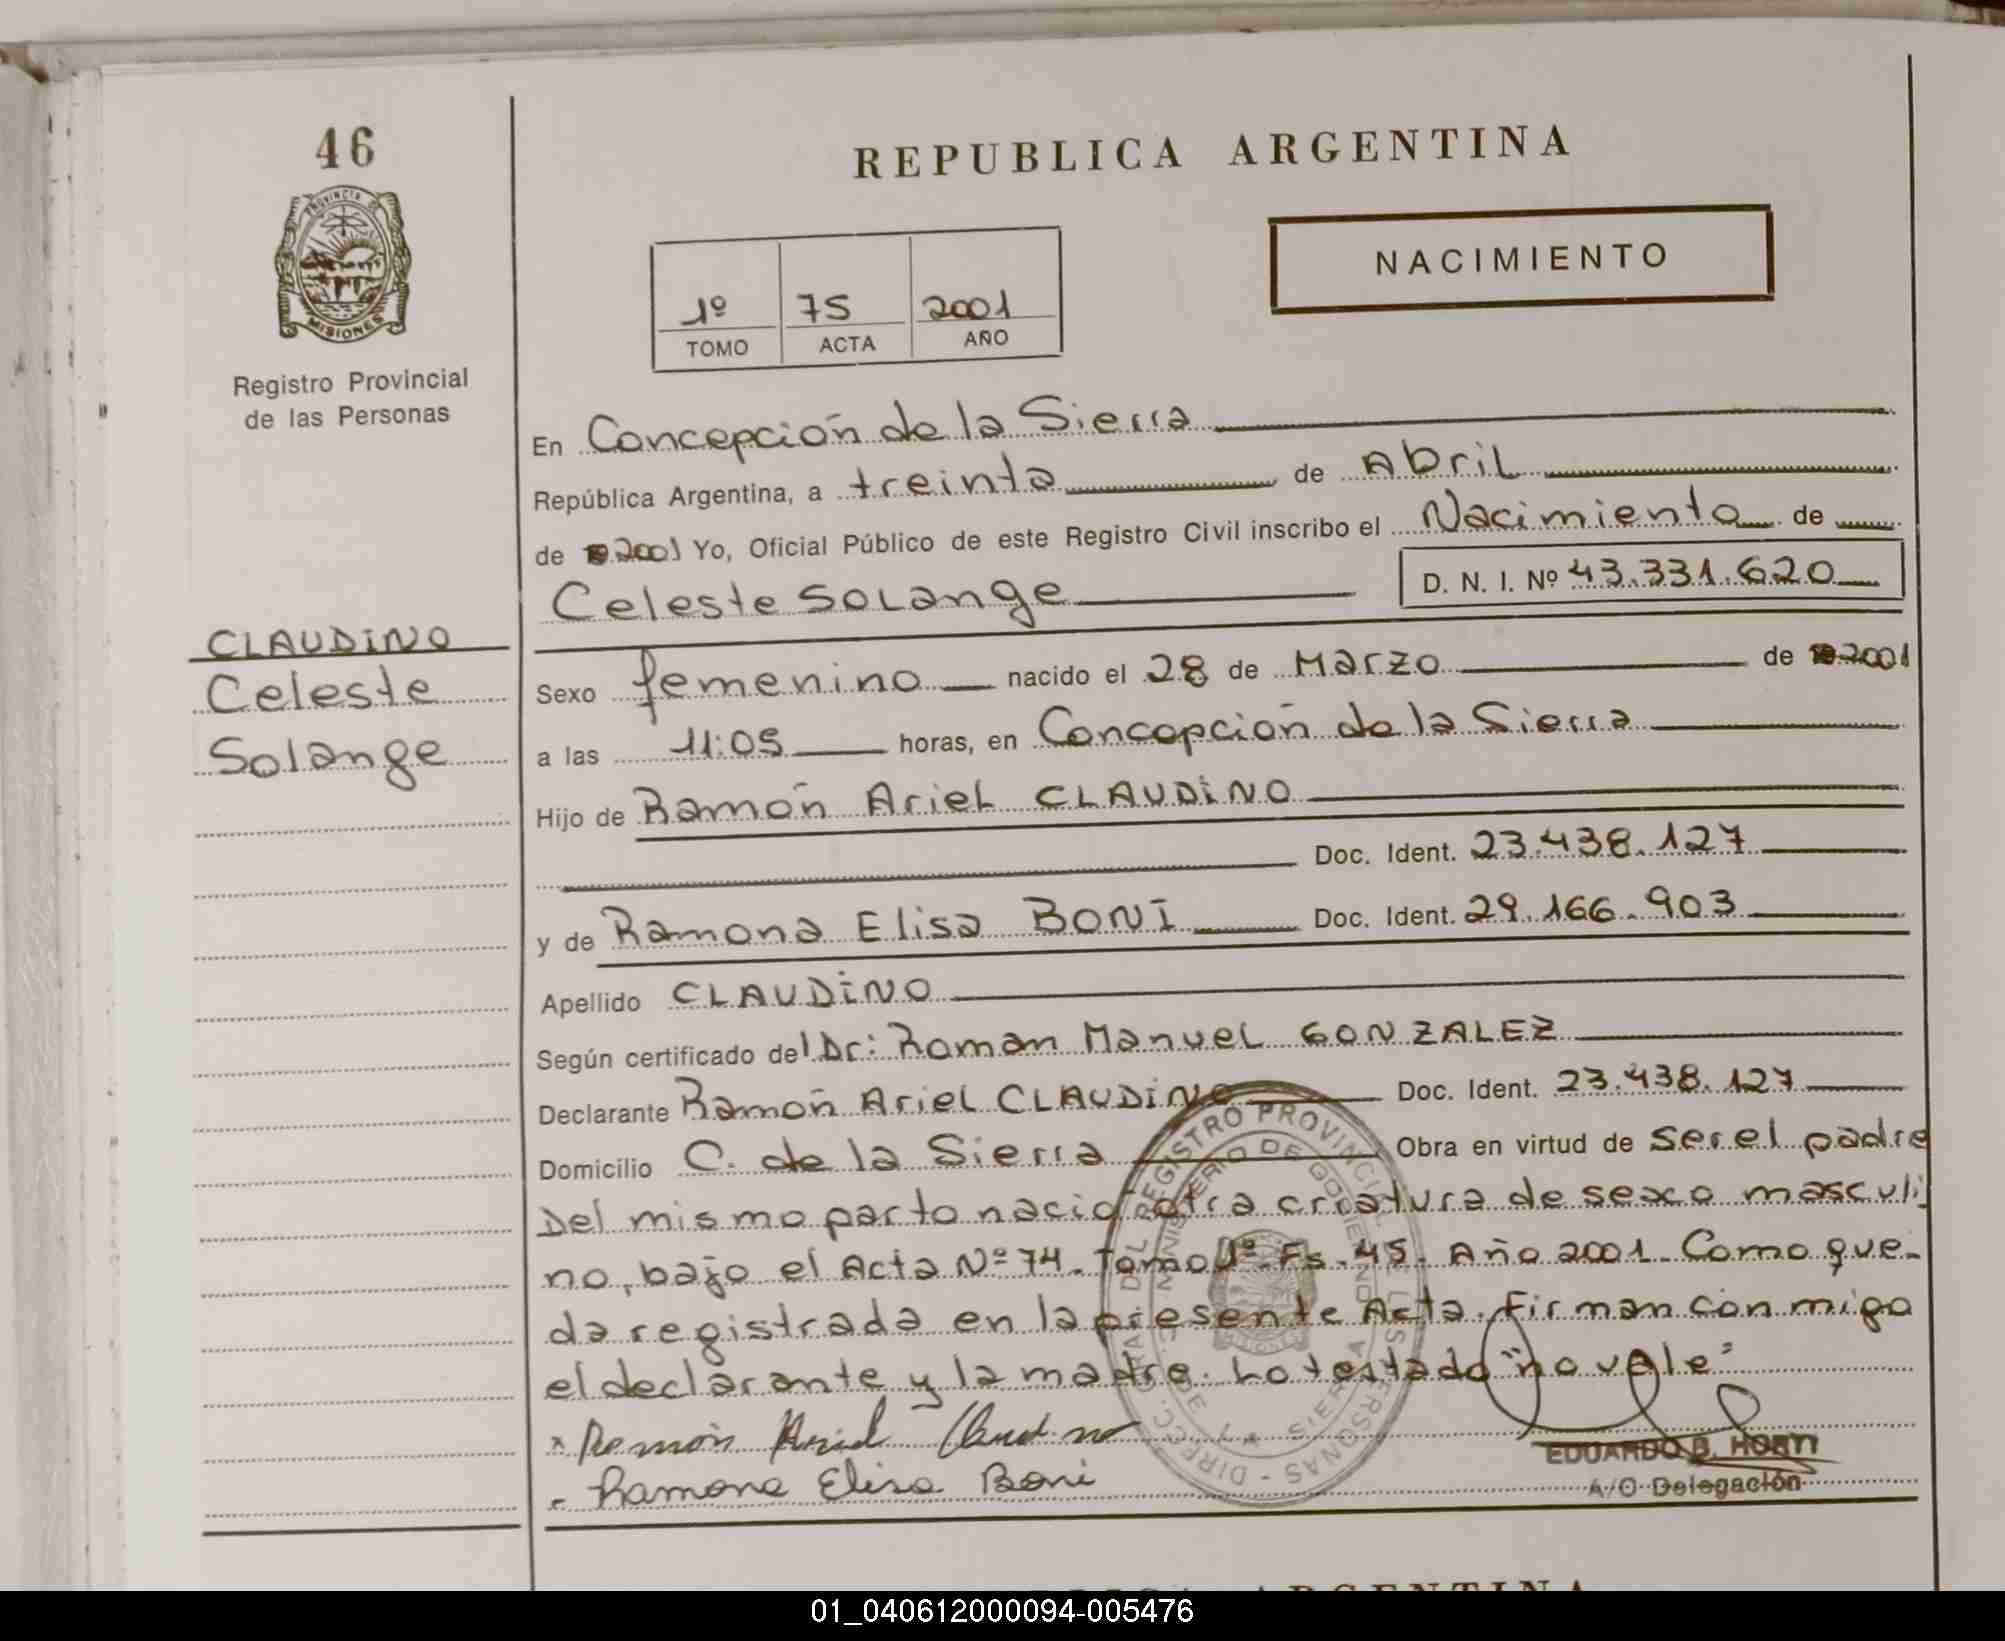 46
REPUBLICA ARGENTINA
PROVINCIA DE
MISIONES
Registro Provincial
de las Personas
NACIMIENTO
1º 75 2001
TOMO ACTA AÑO
En Concepción de la Sierra
República Argentina, a treinta de Abril
de 2001 Yo, Oficial Público de este Registro Civil inscribo el Nacimiento de
Celeste Solange D. N. I. Nº 43.331.620
CLAUDINO
Celeste
Solange
Sexo femenino nacido el 28 de Marzo de 2001
a las 11:05 horas, en Concepción de la Sierra
Hijo de Ramón Ariel CLAUDINO
Doc. Ident. 23.438.127
y de Ramona Elisa BONI Doc. Ident. 29.166.903
Apellido CLAUDINO
Según certificado del Dr: Roman Manuel GONZALEZ
Declarante Ramón Ariel CLAUDINO Doc. Ident. 23.438.127
Domicilio C. de la Sierra Obra en virtud de ser el padre
Del mismo parto nació otra criatura de sexo masculi
no, bajo el Acta Nº 74. Tomo 1º Fs. 45. Año 2001. Como que-
da registrada en la presente Acta. Firman conmigo
el declarante y la madre. Lo testado "no vale"
x Ramón Ariel Claudino
- Ramona Elisa Boni
EDUARDO B. HORTT
A/C Delegación
REGISTRO PROVINCIAL DE LAS PERSONAS
MINISTERIO DE GOBIERNO
ARGENTINA
01_040612000094-005476